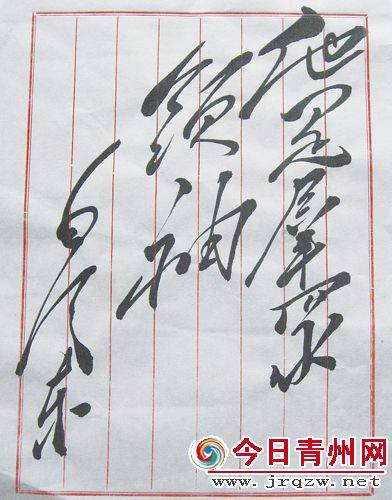 他是羣眾
領袖
毛泽东
今日青州网
www.jrqzw.net